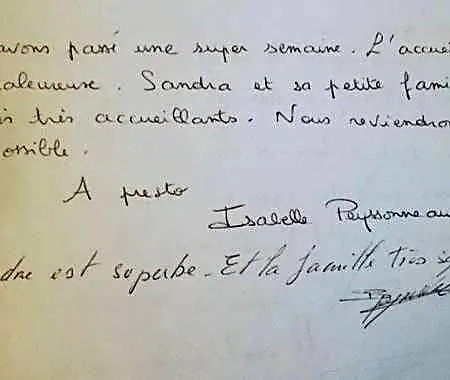 avons passé une super semaine. L'accuei
aleureuse. Sandra et sa petite fami
is très accueillants. Nous reviendron
ossible.
A presto
Isabelle Peyssonneau
dre est superbe - Et la famille très sy